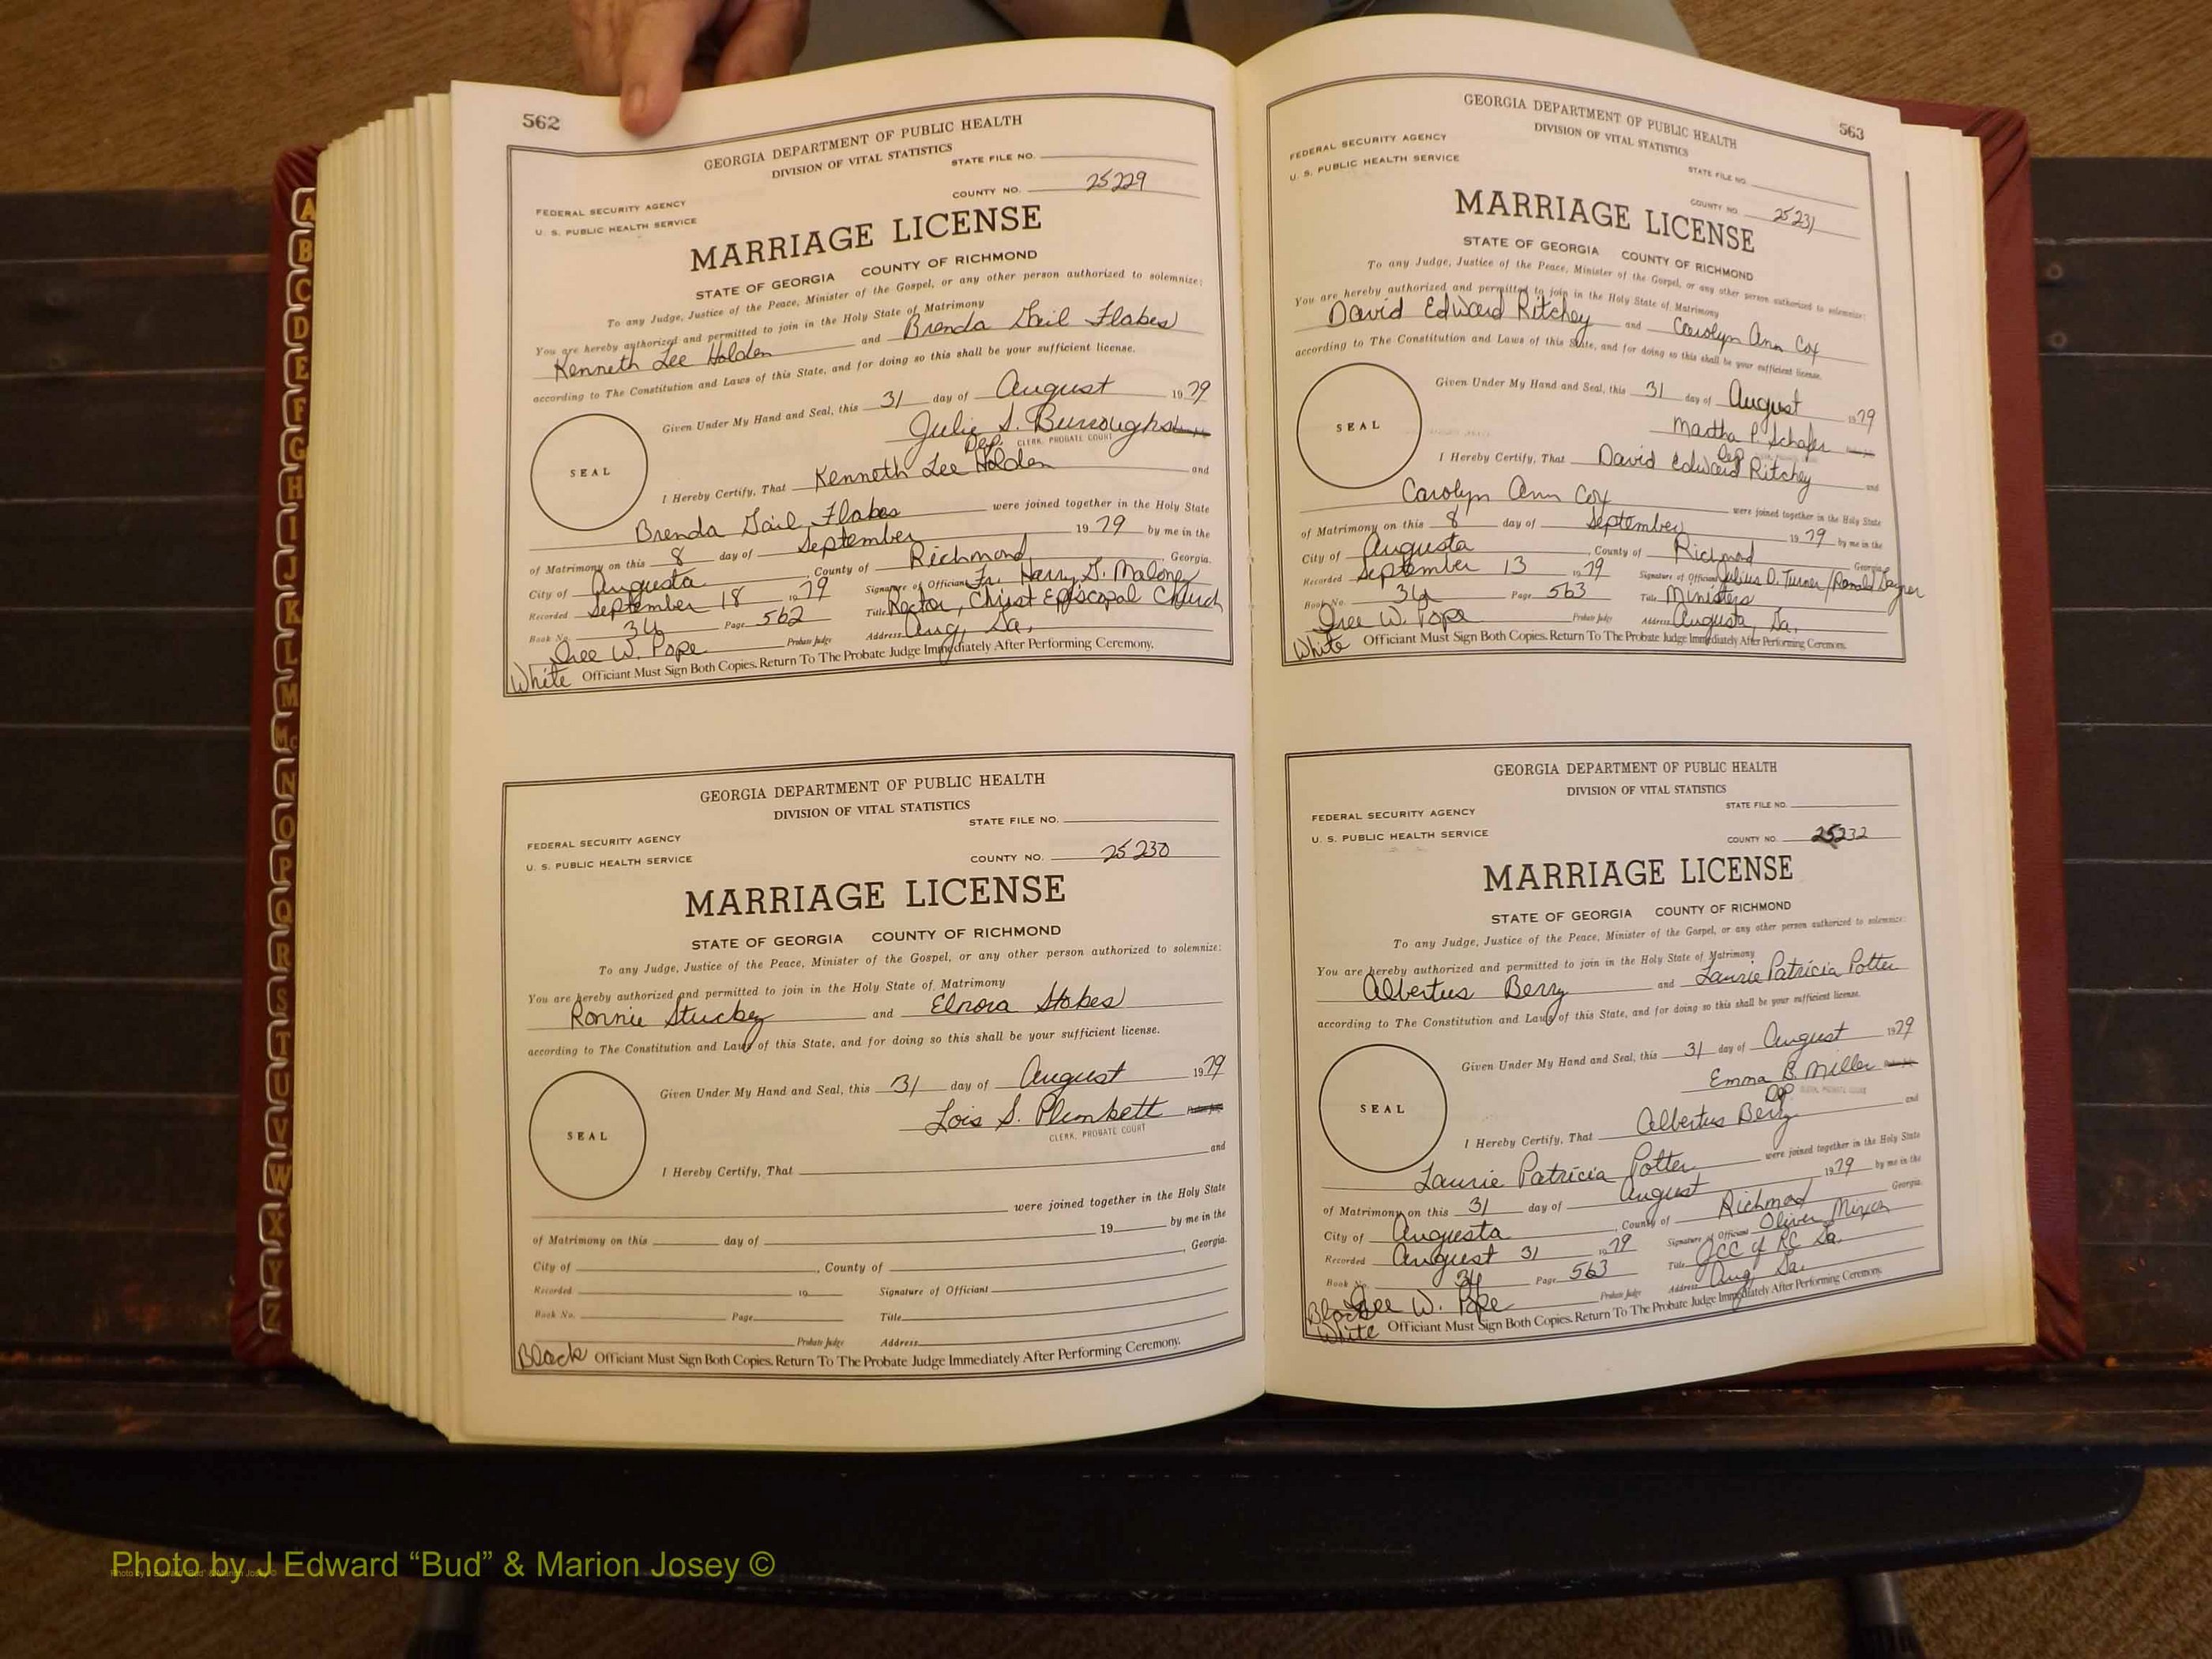 562
GEORGIA DEPARTMENT OF PUBLIC HEALTH
DIVISION OF VITAL STATISTICS
STATE FILE NO.
COUNTY NO. 25229
FEDERAL SECURITY AGENCY
U. S. PUBLIC HEALTH SERVICE
MARRIAGE LICENSE
STATE OF GEORGIA COUNTY OF RICHMOND
To any Judge, Justice of the Peace, Minister of the Gospel, or any other person authorized to solemnize:
You are hereby authorized and permitted to join in the Holy State of Matrimony
Kenneth Lee Holden and Brenda Gail Flakes
according to The Constitution and Laws of this State, and for doing so this shall be your sufficient license.
Given Under My Hand and Seal, this 31 day of August 1979
Julie S. Burroughs
Dep. CLERK, PROBATE COURT
SEAL
I Hereby Certify, That Kenneth Lee Holden and
Brenda Gail Flakes were joined together in the Holy State
of Matrimony on this 8 day of September 1979 by me in the
City of Augusta, County of Richmond, Georgia.
Recorded September 18 1979 Signature of Official Fr. Harry G. Maloney
Book No. 34 Page 562 Title Rector, Christ Episcopal Church
Iree W. Pope Probate Judge Address Aug, Ga.
White Officiant Must Sign Both Copies. Return To The Probate Judge Immediately After Performing Ceremony.
GEORGIA DEPARTMENT OF PUBLIC HEALTH
DIVISION OF VITAL STATISTICS
STATE FILE NO.
FEDERAL SECURITY AGENCY
U. S. PUBLIC HEALTH SERVICE
COUNTY NO. 25230
MARRIAGE LICENSE
STATE OF GEORGIA COUNTY OF RICHMOND
To any Judge, Justice of the Peace, Minister of the Gospel, or any other person authorized to solemnize:
You are hereby authorized and permitted to join in the Holy State of Matrimony
Ronnie Stuckey and Elnora Stokes
according to The Constitution and Laws of this State, and for doing so this shall be your sufficient license.
Given Under My Hand and Seal, this 31 day of August 1979
Lois S. Plunkett Probate Judge
CLERK, PROBATE COURT
SEAL
I Hereby Certify, That and
were joined together in the Holy State
of Matrimony on this day of 19 by me in the
City of , County of , Georgia.
Recorded 19 Signature of Official
Book No. Page Title
Probate Judge Address
Black Officiant Must Sign Both Copies. Return To The Probate Judge Immediately After Performing Ceremony.
563
GEORGIA DEPARTMENT OF PUBLIC HEALTH
DIVISION OF VITAL STATISTICS
FEDERAL SECURITY AGENCY
U. S. PUBLIC HEALTH SERVICE
STATE FILE NO.
COUNTY NO. 25231
MARRIAGE LICENSE
STATE OF GEORGIA COUNTY OF RICHMOND
To any Judge, Justice of the Peace, Minister of the Gospel, or any other person authorized to solemnize:
You are hereby authorized and permitted to join in the Holy State of Matrimony
David Edward Ritchey and Carolyn Ann Cox
according to The Constitution and Laws of this State, and for doing so this shall be your sufficient license.
Given Under My Hand and Seal, this 31 day of August 1979
Martha P. Schafer
Dep
SEAL
I Hereby Certify, That David Edward Ritchey and
Carolyn Ann Cox were joined together in the Holy State
of Matrimony on this 8 day of September 1979 by me in the
City of Augusta, County of Richmond Georgia.
Recorded September 13 1979 Signature of Official Julius D. Turner / Ronald
Book No. 34 Page 563 Title Ministers
Iree W. Pope Probate Judge Address Augusta, Ga.
White Officiant Must Sign Both Copies. Return To The Probate Judge Immediately After Performing Ceremony.
GEORGIA DEPARTMENT OF PUBLIC HEALTH
DIVISION OF VITAL STATISTICS
STATE FILE NO.
FEDERAL SECURITY AGENCY
U. S. PUBLIC HEALTH SERVICE
COUNTY NO. 25232
MARRIAGE LICENSE
STATE OF GEORGIA COUNTY OF RICHMOND
To any Judge, Justice of the Peace, Minister of the Gospel, or any other person authorized to solemnize:
You are hereby authorized and permitted to join in the Holy State of Matrimony
Albertus Berry and Laurie Patricia Potter
according to The Constitution and Laws of this State, and for doing so this shall be your sufficient license.
Given Under My Hand and Seal, this 31 day of August 1979
Emma B. Miller
Dep CLERK, PROBATE COURT
SEAL
I Hereby Certify, That Albertus Berry and
Laurie Patricia Potter were joined together in the Holy State
of Matrimony on this 31 day of August 1979 by me in the
City of Augusta, County of Richmond Georgia.
Recorded August 31 1979 Signature of Official Oliver Mixon
Book No. 34 Page 563 Title JCC of RC Ga.
Iree W. Pope Probate Judge Address Aug, Ga.
Black
White Officiant Must Sign Both Copies. Return To The Probate Judge Immediately After Performing Ceremony.
A
B
C
D
E
F
G
H
I
J
K
L
M
Mc
N
O
P
Q
R
S
T
U
V
W
X
Y
Z
Photo by J Edward “Bud” & Marion Josey ©